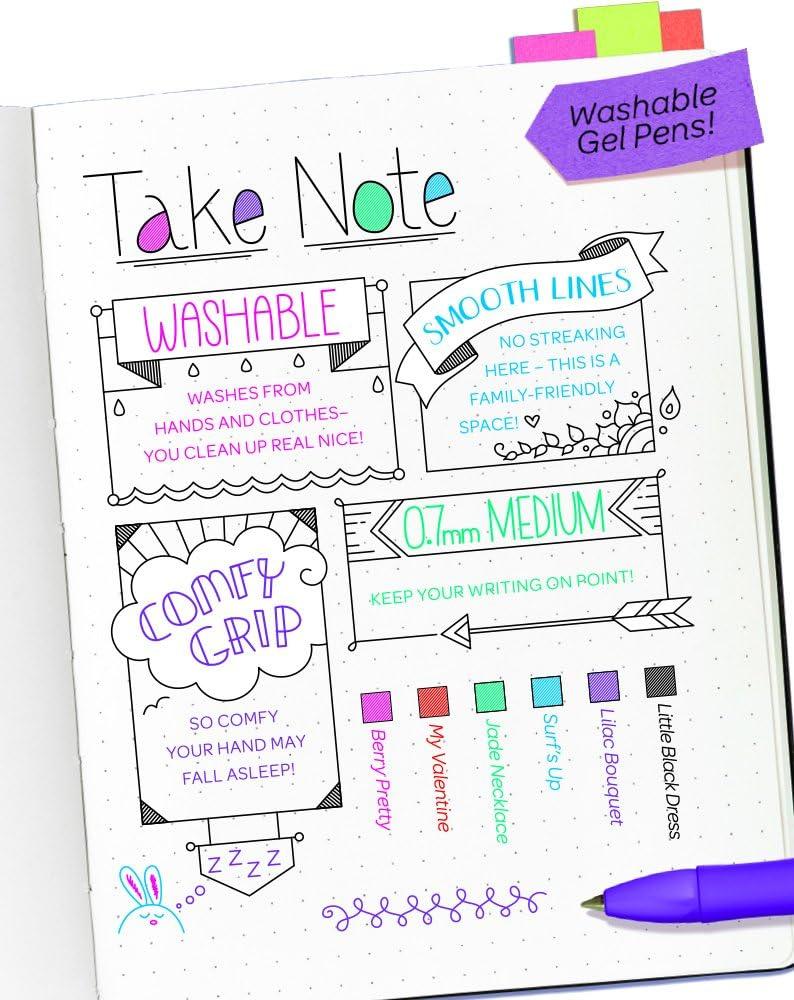 Washable
Gel Pens!
Take Note
WASHABLE
WASHES FROM
HANDS AND CLOTHES–
YOU CLEAN UP REAL NICE!
SMOOTH LINES
NO STREAKING
HERE – THIS IS A
FAMILY-FRIENDLY
SPACE!
COMFY
GRIP
SO COMFY
YOUR HAND MAY
FALL ASLEEP!
Z Z Z Z
0.7mm MEDIUM
KEEP YOUR WRITING ON POINT!
Berry Pretty
My Valentine
Jade Necklace
Surf's Up
Lilac Bouquet
Little Black Dress